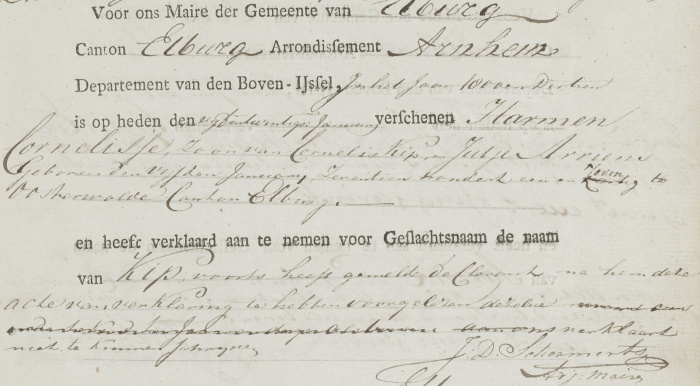 Voor ons Maire der Gemeente van Elburg
Canton Elburg Arrondissement Arnhem
Departement van den Boven-IJssel, In het Jaar 18 Dertien
is op heden den vijf en twintigs Januarij verschenen Harmen
Cornelisse, Zoon van Cornelis Kip en Arriens
Geboren den vijfden Januarij Zeventien hondert een en Zeventig te
Oosterwolde Canton Elburg.
en heeft verklaard aan te nemen voor Geslachtsnaam de naam
van Kip, voorts heeft gemelde declarant na hem deze
acte van verklaring te hebben voorgelezen dezelve
aan ons verklaart
niet te kunnen schrijven
J. D. Schermerts
Adj: Maire